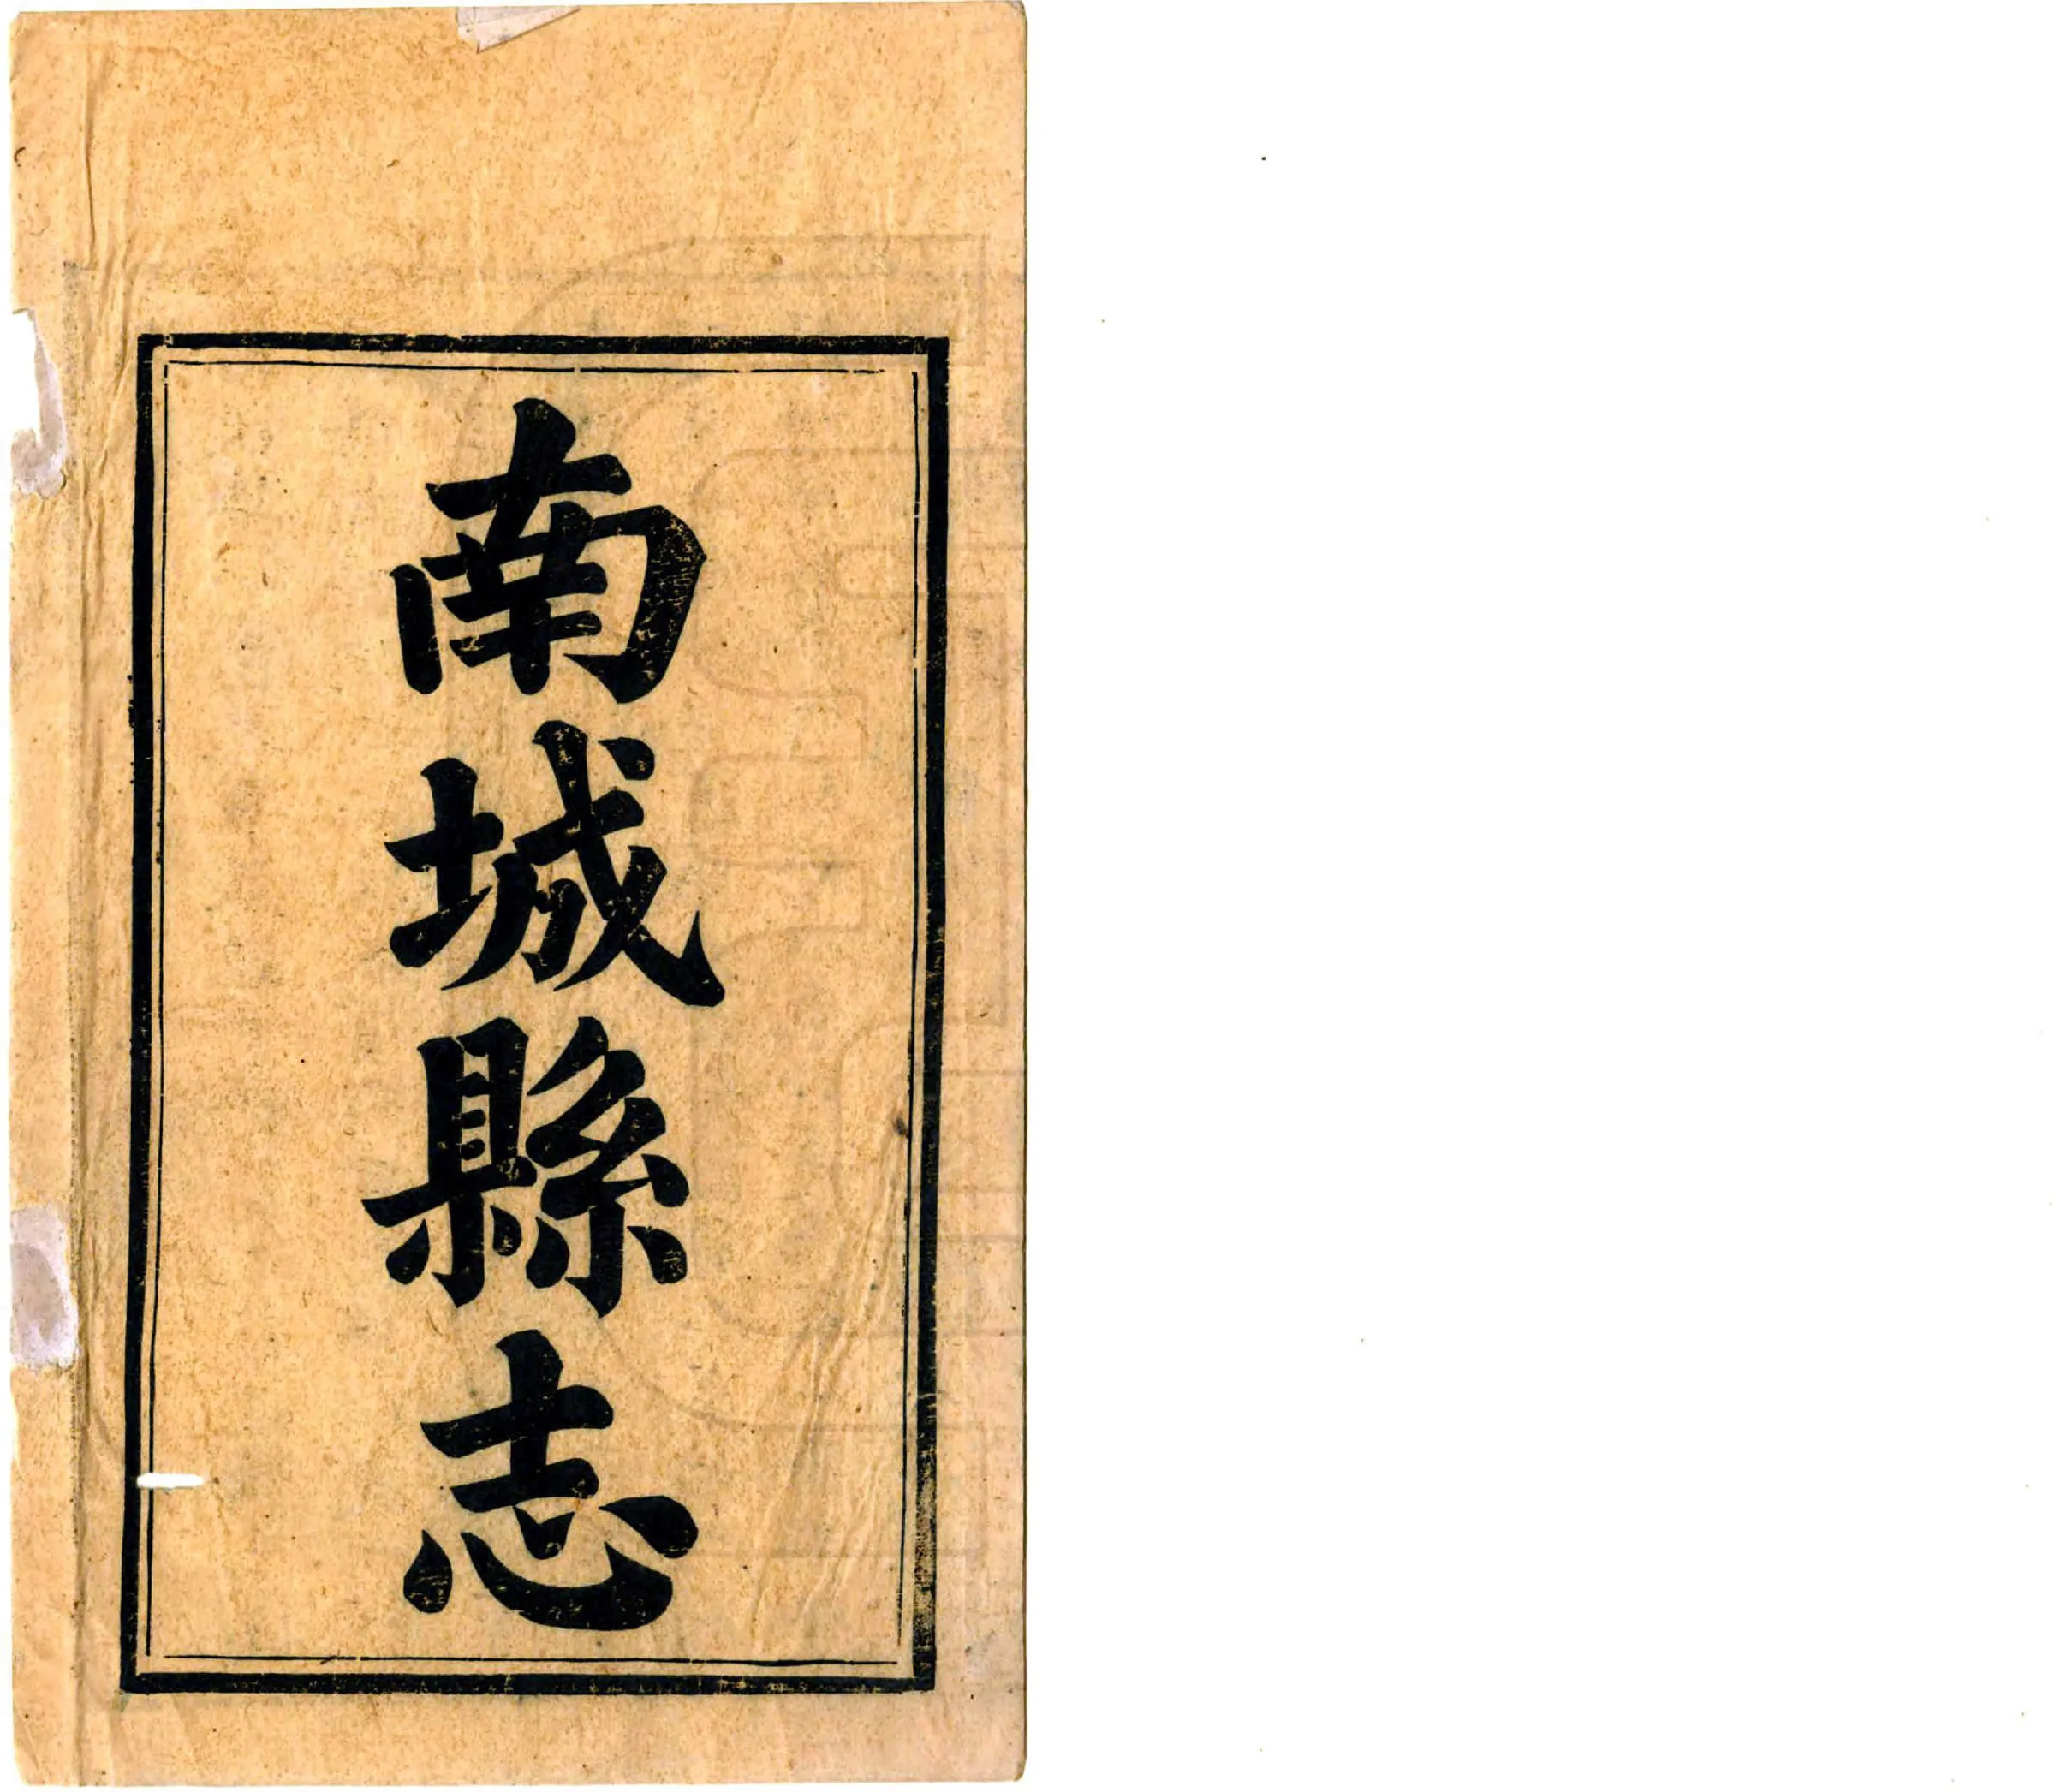 南城縣志